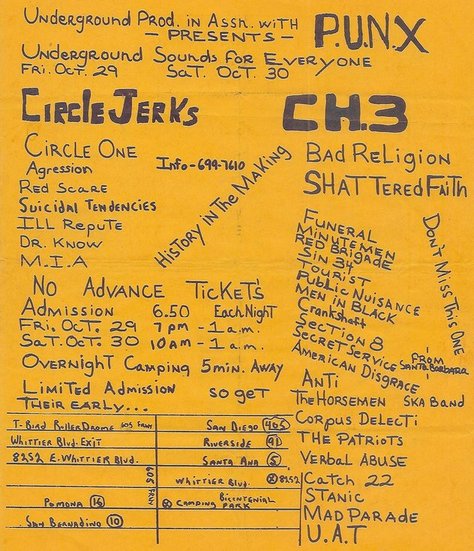 Underground Prod. in Assn. with P.U.N.X
- PRESENTS -
Underground Sounds for Everyone
Fri. Oct. 29 Sat. Oct. 30
Circle Jerks
CH.3
Circle One
Agression
Info-699-7610
Red Scare
Suicidal Tendencies
Ill Repute
Dr. Know
M.I.A
History in The Making
Bad Religion
Shattered Faith
Funeral
Minutemen
Red Brigade
Sin 34
Tourist
Public Nuisance
Men in Black
Crankshaft
Section 8
Secret Service From Santa Barbara
American Disgrace
Don't Miss This One
Anti
The Horsemen Ska Band
Corpus Delecti
The Patriots
Verbal Abuse
Catch 22
Stanic
Mad Parade
U.A.T
No Advance Ticket's
Admission 6.50 Each Night
Fri. Oct. 29 7pm - 1a.m.
Sat. Oct. 30 10am - 1a.m.
Overnight Camping 5min. Away
Limited Admission so get
Their Early...
T-Bird RollerDrome 605 FRWY
Whittier Blvd. Exit
8252 E. Whittier Blvd.
San Diego 405
Riverside 91
Santa Ana 5
Whittier Blvd. 8252
605 FRWY
Pomona
San Bernadino 10
Camping Bicentenial Park